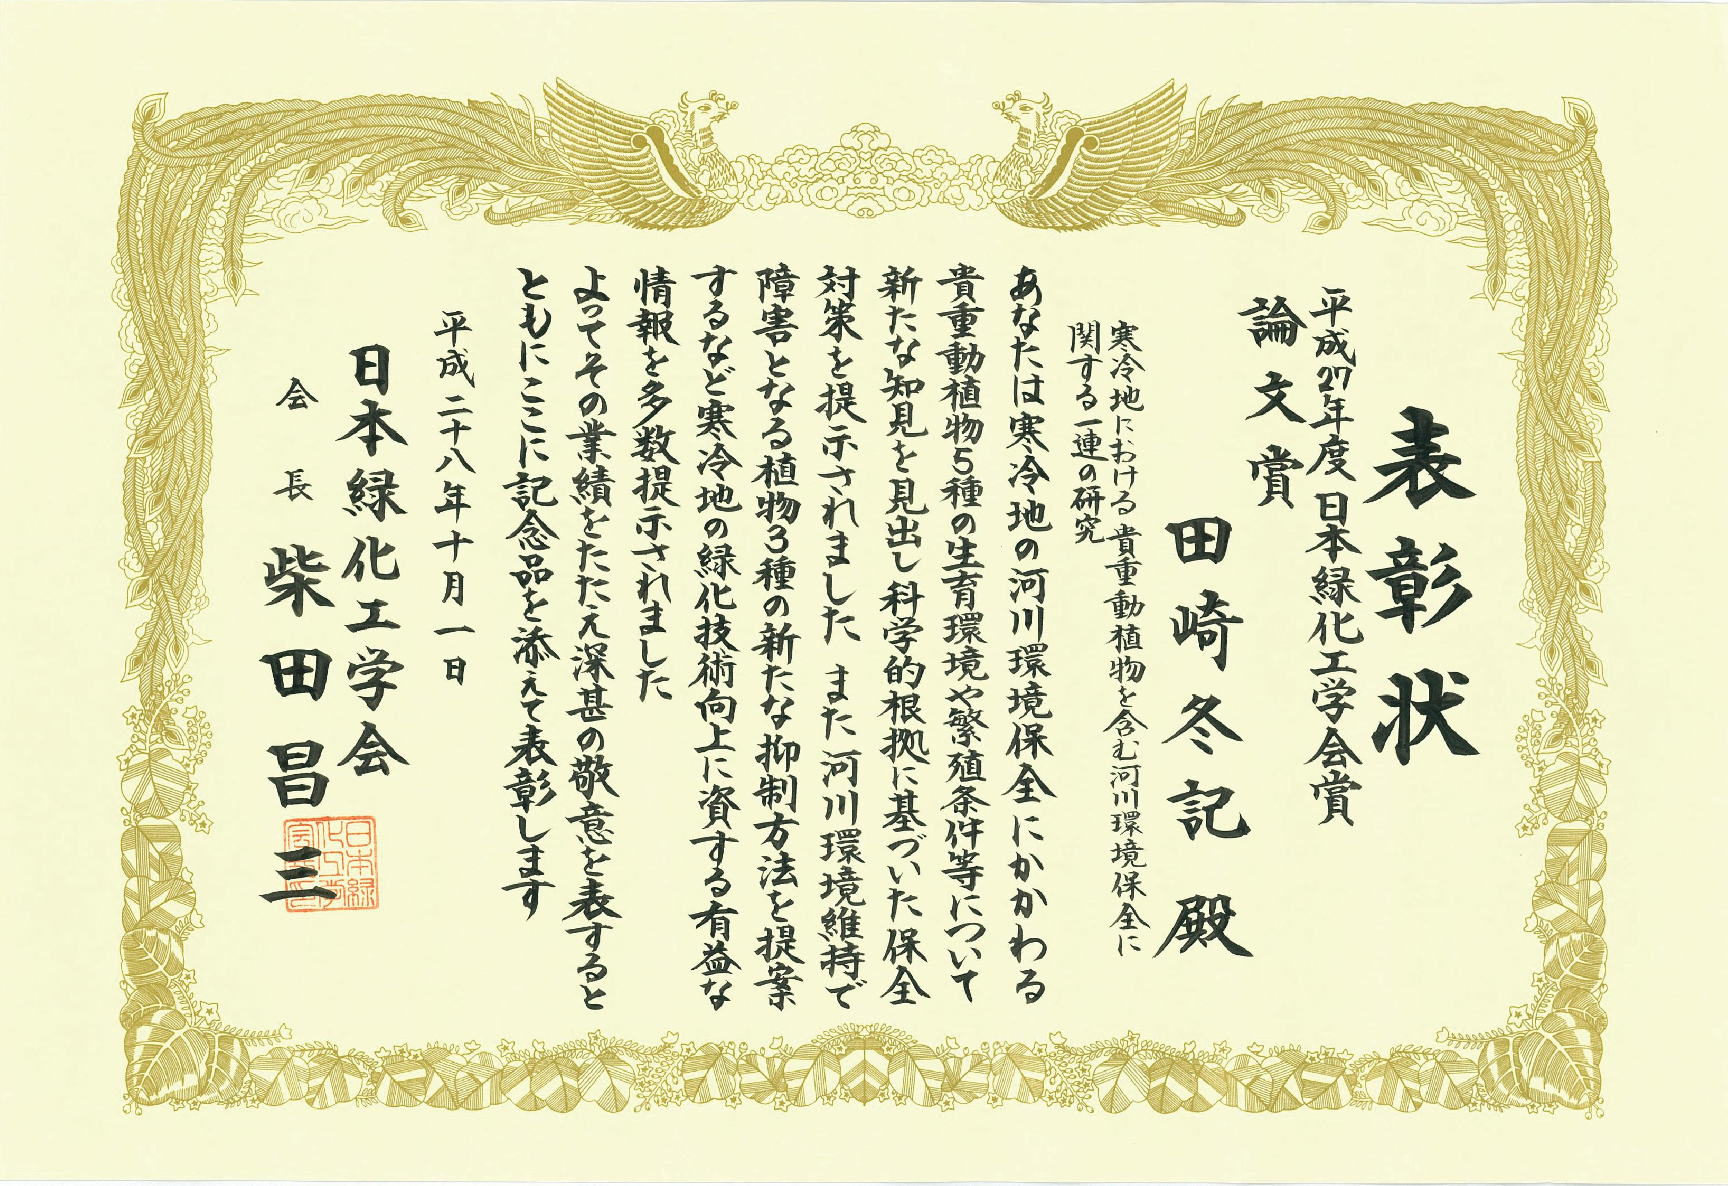 表彰状
平成27年度日本緑化工学会賞
論文賞
田崎冬記殿
寒冷地における貴重動植物を含む河川環境保全に
関する一連の研究
あなたは寒冷地の河川環境保全にかかわる
貴重動植物5種の生育環境や繁殖条件等について
新たな知見を見出し科学的根拠に基づいた保全
対策を提示されました また河川環境維持で
障害となる植物3種の新たな抑制方法を提案
するなど寒冷地の緑化技術向上に資する有益な
情報を多数提示されました
よってその業績をたたえ深甚の敬意を表すると
ともにここに記念品を添えて表彰します
平成二十八年十月一日
日本緑化工学会
会長 柴田昌三
日本緑
化工学
会長印